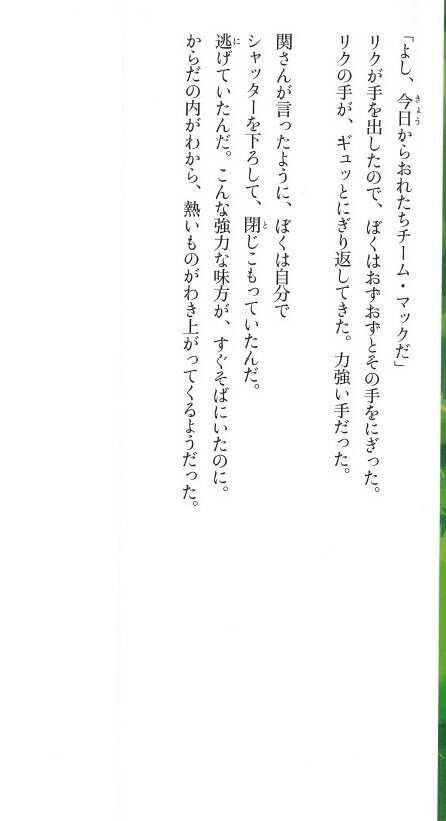 「よし、今日からおれたちチーム・マックだ」
リクが手を出したので、ぼくはおずおずとその手をにぎった。
リクの手が、ギュッとにぎり返してきた。力強い手だった。
関さんが言ったように、ぼくは自分で
シャッターを下ろして、閉じこもっていたんだ。
逃げていたんだ。こんな強力な味方が、すぐそばにいたのに。
からだの内がわから、熱いものがわき上がってくるようだった。